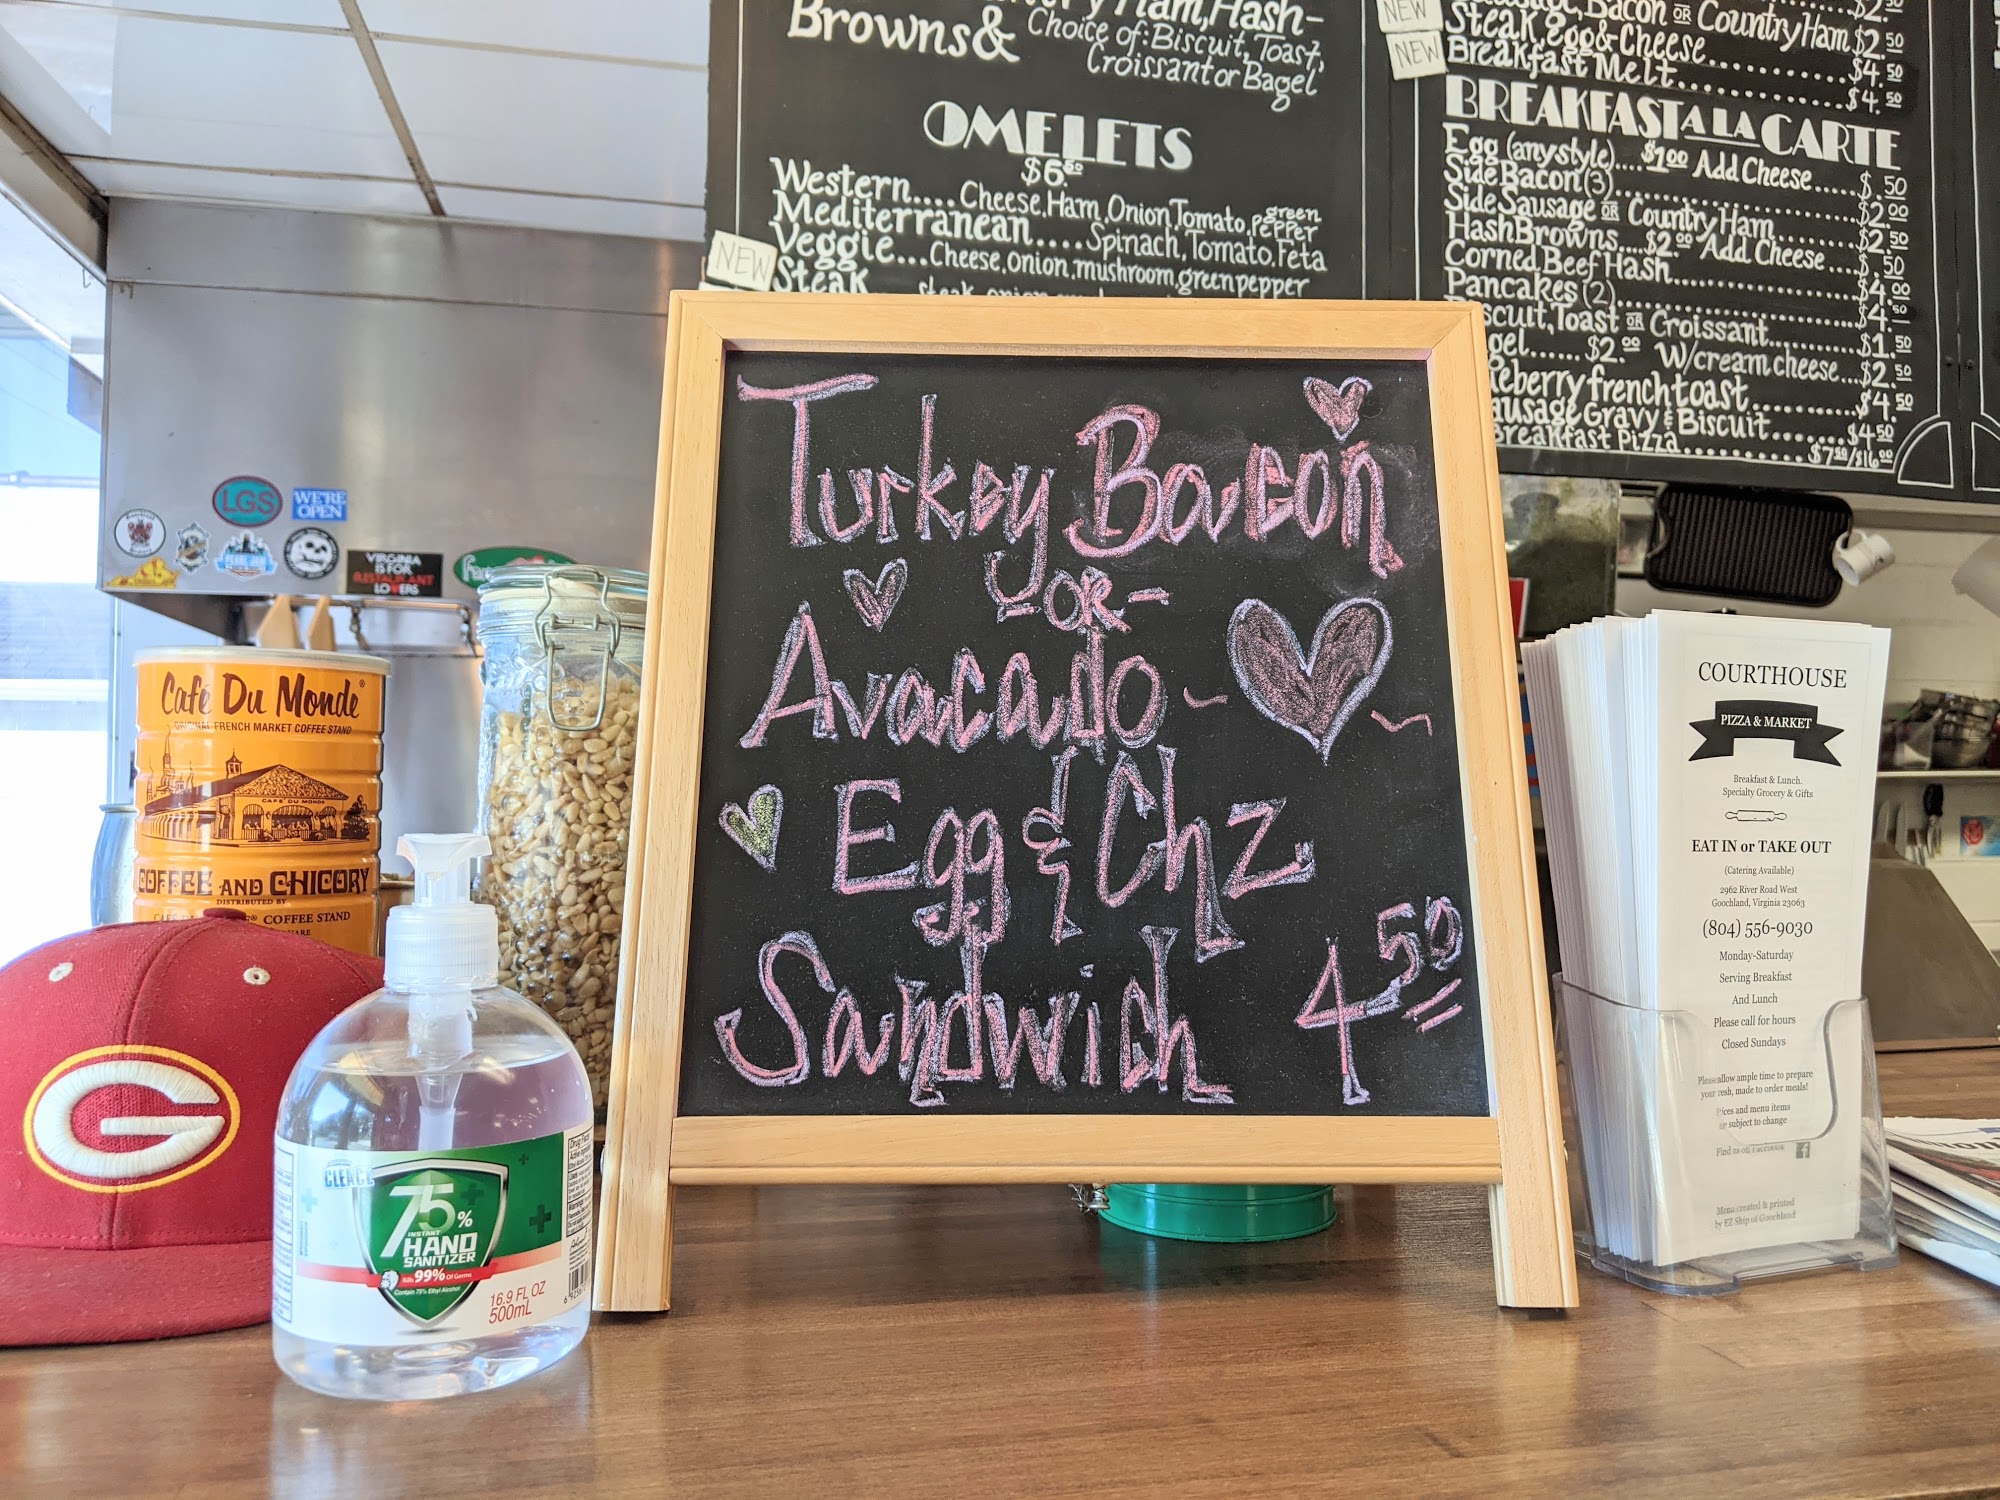 Browns&
ry Ham, Hash-
Choice of: Biscuit, Toast,
Croissant or Bagel
OMELETS
$6.50
Western.... Cheese, Ham, Onion, Tomato, green pepper
Mediterranean.... Spinach, Tomato, Feta
Veggie... Cheese, onion, mushroom, green pepper
NEW
Steak
steak, onion
NEW
Bacon OR Country Ham $2.50
NEW
Steak, Egg & Cheese........ $4.50
Breakfast Melt............ $4.50
BREAKFAST A LA CARTE
Egg (any style).... $1.00 Add Cheese..... $.50
Side Bacon (3)............ $2.00
Side Sausage OR Country Ham....... $2.50
Hash Browns.... $2.00 Add Cheese.... $.50
Corned Beef Hash............ $4.00
Pancakes (2)............ $4.50
scuit, Toast OR Croissant........ $1.50
gel...... $2.00 W/cream cheese.... $2.50
eberry french toast........ $4.50
ausage Gravy & Biscuit....... $4.50
Breakfast Pizza........... $7.50/$16.00
Turkey Bacon
-OR-
Avocado
Egg & Chz
Sandwich 4.50
LGS
WE'RE
OPEN
PEARL JAM
VIRGINIA
IS FOR
RESTAURANT
LOVERS
Café Du Monde®
ORIGINAL FRENCH MARKET COFFEE STAND
CAFE DU MONDE
COFFEE AND CHICORY
DISTRIBUTED BY
COFFEE STAND
G
CLEACE
75%
INSTANT
HAND
SANITIZER
Kills 99% Of Germs
Contain 75% Ethyl Alcohol
16.9 FL OZ
500mL
Drug Facts
COURTHOUSE
PIZZA & MARKET
Breakfast & Lunch.
Specialty Grocery & Gifts
EAT IN or TAKE OUT
(Catering Available)
2962 River Road West
Goochland, Virginia 23063
(804) 556-9030
Monday-Saturday
Serving Breakfast
And Lunch
Please call for hours
Closed Sundays
Please allow ample time to prepare
your fresh, made to order meals!
Prices and menu items
are subject to change
Find us on Facebook
Menu created & printed
by EZ Ship of Goochland